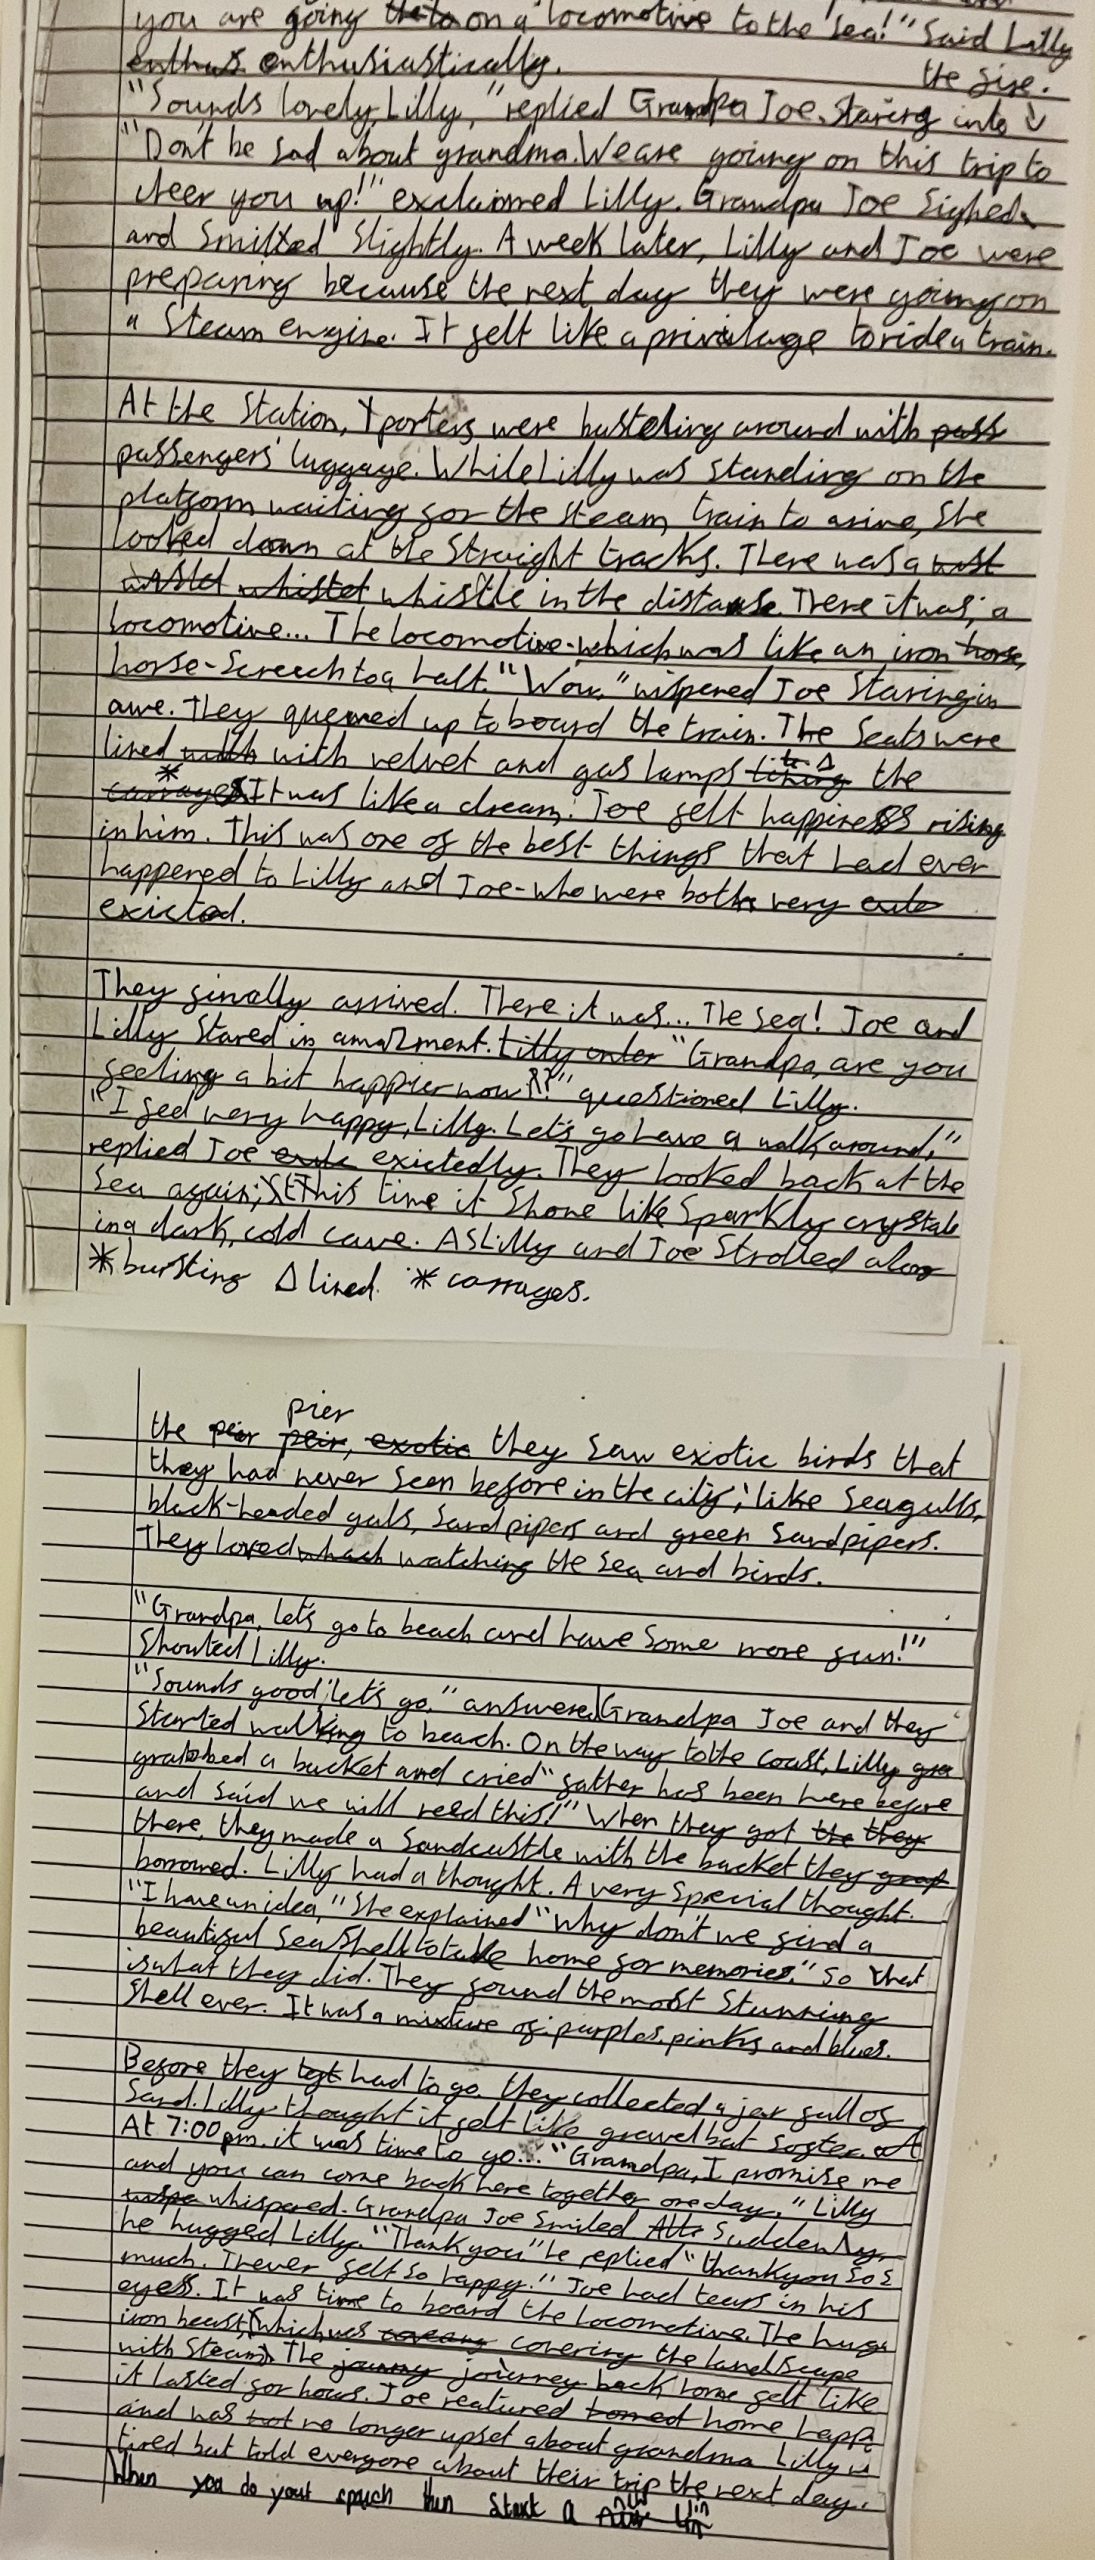 you are going on a locomotive to the sea!" Said Lilly
enthusiastically.
the fire.
"Sounds lovely, Lilly," replied Grandpa Joe, staring into ↓
"Don't be sad about grandma. We are going on this trip to
cheer you up!" exclaimed Lilly. Grandpa Joe Sighed
and Smiled Slightly. A week later, Lilly and Joe were
preparing because the next day they were going on
a Steam engine. It felt like a privalage to ride a train.
At the Station, * porters were busteling around with pass
passengers' luggage. While Lilly was Standing on the
platform waiting for the steam train to arive, She
looked down at the Straight tracks. There was a
whistle in the distanse. There it was; a
locomotive... The locomotive-which was like an iron horse,
horse-Screech to a halt. "Wow," wispered Joe Staring in
awe. They queued up to board the train. The Seats were
lined with with velvet and gas lamps to Δ the
* carrages It was like a dream. Joe felt happiness rising
in him. This was one of the best things that had ever
happened to Lilly and Joe-who were both very
exicted.
They finally arrived. There it was... The Sea! Joe and
Lilly Stared in amazment. Lilly "Grandpa, are you
feeling a bit happier now?" questioned Lilly.
"I feel very happy, Lilly. Let's go have a walk around,"
replied Joe exictedly. They looked back at the
Sea again; This time it Shone like Sparkly crystals
in a dark, cold cave. As Lilly and Joe Strolled along
* bursting Δ lined * carrages.
pier
the peir peir, exotic they Saw exotic birds that
they had never Seen before in the city; like Seagulls,
black-headed guls, Sandpipers and green Sandpipers.
They loved watching the Sea and birds.
"Grandpa, let's go to beach and have Some more fun!"
Shouted Lilly.
"Sounds good; let's go," answered Grandpa Joe and they
Started walking to beach. On the way to the coast, Lilly gra
grabbed a bucket and cried "father has been here before
and Said we will need this!" When they got the they
there, they made a Sandcastle with the bucket they
borrowed. Lilly had a thought. A very Special thought.
"I have an idea," She explained "Why don't we find a
beautiful SeaShell to take home for memories." So that
is what they did. They found the most Stunning
Shell ever. It was a mixture of: purples, pinks and blues.
Before they had to go, they collected a jar full of
Sand. Lilly thought it felt like gravel but softer. A
At 7:00pm, it was time to go... "Grandpa, I promise me
and you can come back here together one day," Lilly
whispered. Grandpa Joe Smiled Suddenly,
he hugged Lilly. "Thank you" he replied "thank you So
much. I never felt so happy." Joe had tears in his
eyes. It was time to board the locomotive. The huge
iron beast, (which was covering the landScape
with Steam). The journey back home felt like
it lasted for hours. Joe returned home happi
and was not no longer upset about grandma Lilly
tired but told everyone about their trip the next day.
When you do your speach then Start a new lin